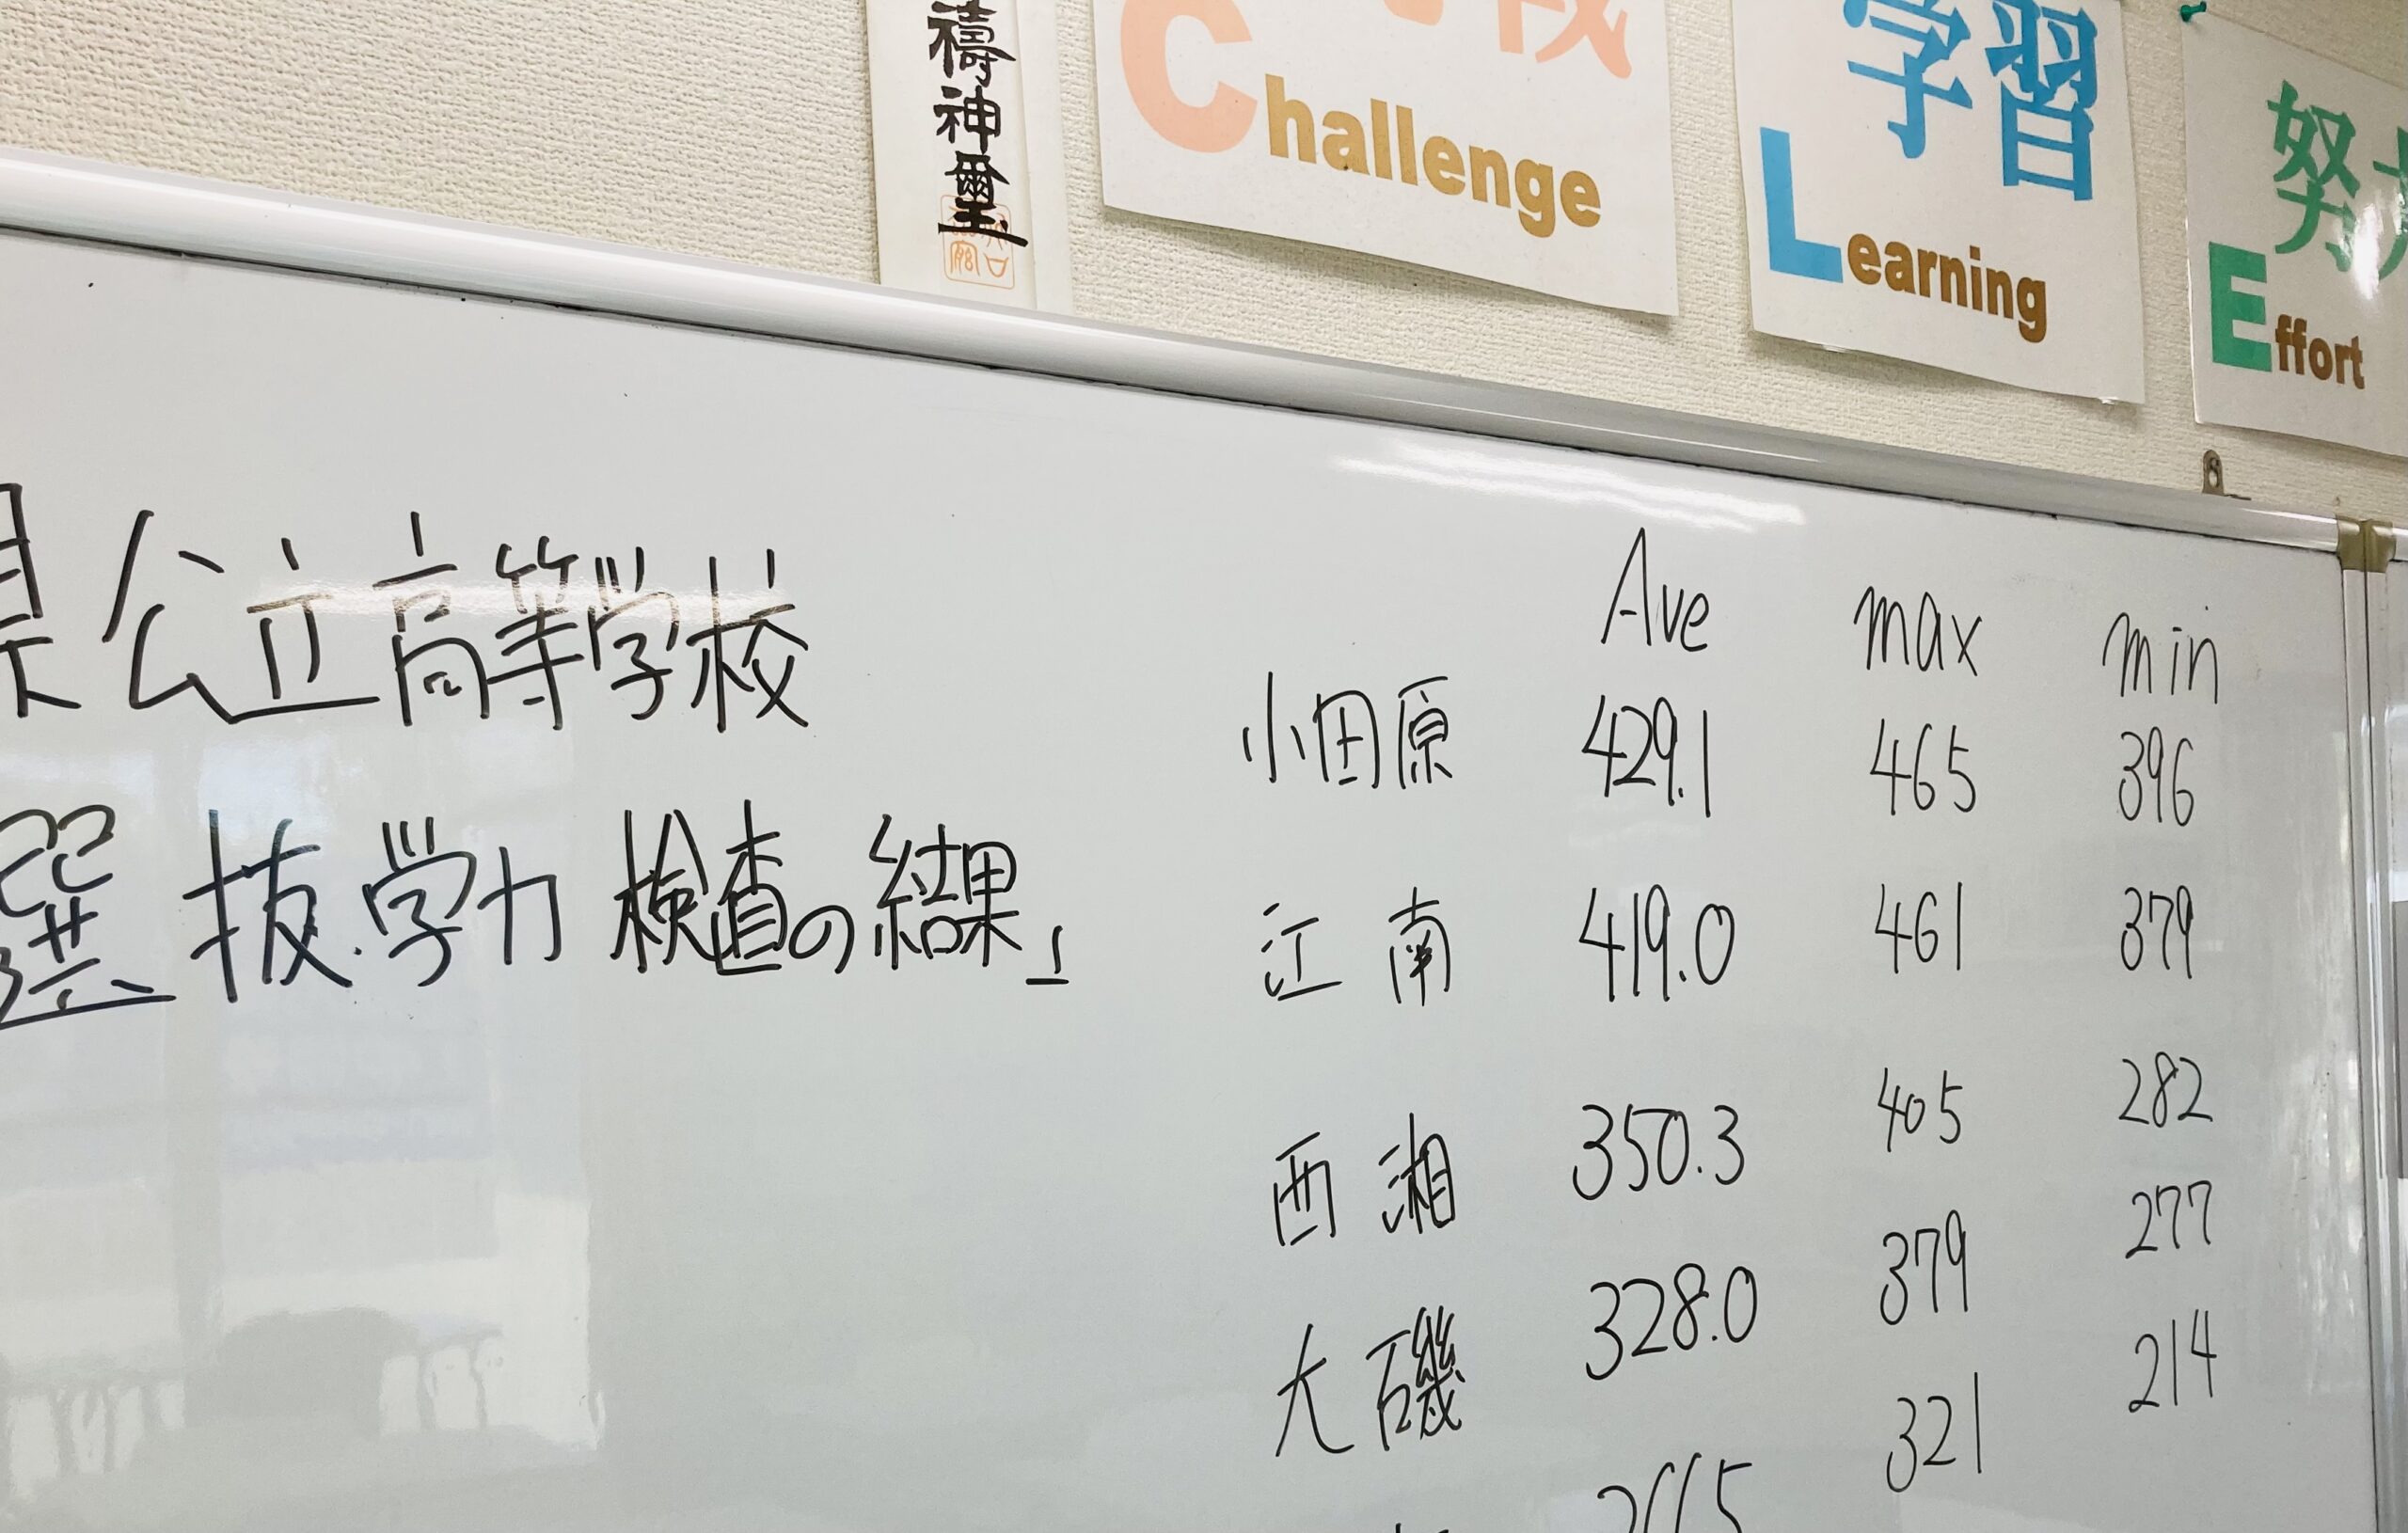 禱神璽
Challenge
学習
Learning
努
Effort
県公立高等学校
選抜学力検査の結果」
Ave max min
小田原 429.1 465 396
江南 419.0 461 379
西湘 350.3 405 282
大磯 328.0 379 277
321 214